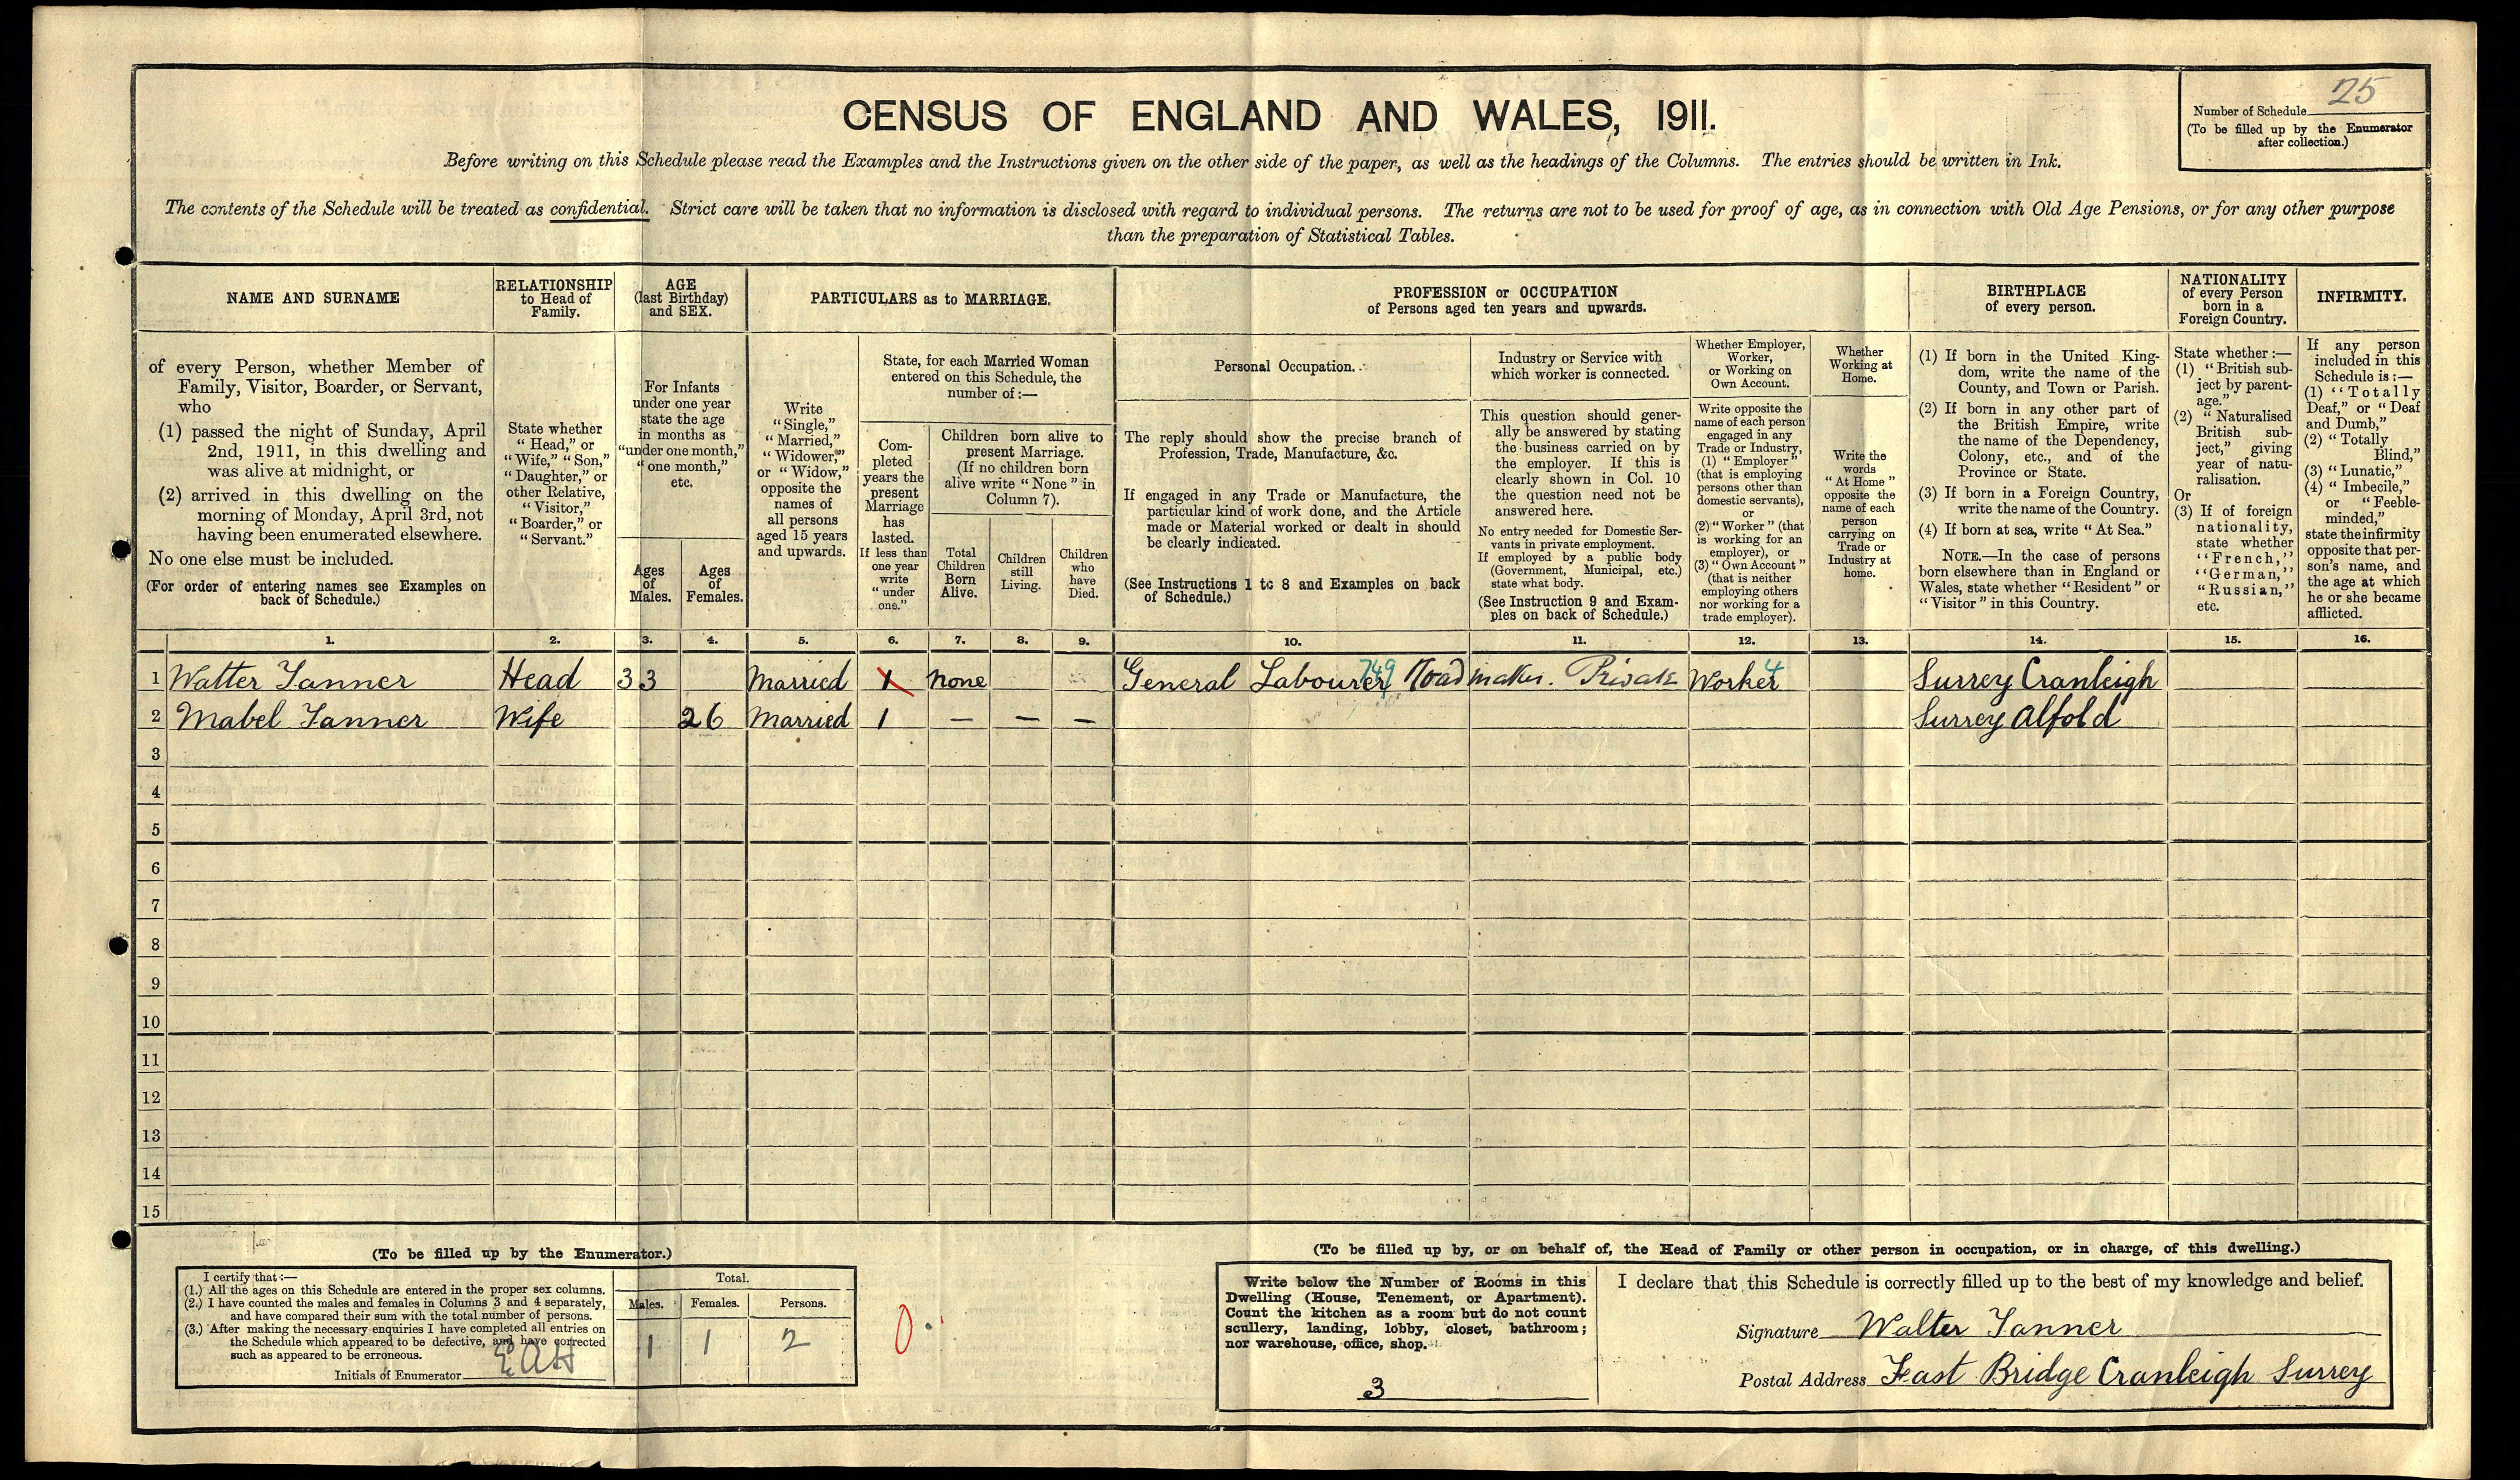 25
Number of Schedule
(To be filled up by the Enumerator
after collection.)
CENSUS OF ENGLAND AND WALES, 1911.
Before writing on this Schedule please read the Examples and the Instructions given on the other side of the paper, as well as the headings of the Columns. The entries should be written in Ink.
The contents of the Schedule will be treated as confidential. Strict care will be taken that no information is disclosed with regard to individual persons. The returns are not to be used for proof of age, as in connection with Old Age Pensions, or for any other purpose
than the preparation of Statistical Tables.
NAME AND SURNAME
of every Person, whether Member of
Family, Visitor, Boarder, or Servant,
who
(1) passed the night of Sunday, April
2nd, 1911, in this dwelling and
was alive at midnight, or
(2) arrived in this dwelling on the
morning of Monday, April 3rd, not
having been enumerated elsewhere.
No one else must be included.
(For order of entering names see Examples on
back of Schedule.)
RELATIONSHIP
to Head of
Family.
State whether
"Head," or
"Wife," "Son,"
"Daughter," or
other Relative,
"Visitor,"
"Boarder," or
"Servant."
AGE
(last Birthday)
and SEX.
For Infants
under one year
state the age
in months as
"under one month,"
"one month,"
etc.
Ages
of
Males.
Ages
of
Females.
PARTICULARS as to MARRIAGE.
Write
"Single,"
"Married,"
"Widower,"
or "Widow,"
opposite the
names of
all persons
aged 15 years
and upwards.
State, for each Married Woman
entered on this Schedule, the
number of:—
Com-
pleted
years the
present
Marriage
has
lasted.
If less than
one year
write
"under
one."
Children born alive to
present Marriage.
(If no children born
alive write "None" in
Column 7).
Total
Children
Born
Alive.
Children
still
Living.
Children
who
have
Died.
PROFESSION or OCCUPATION
of Persons aged ten years and upwards.
Personal Occupation.
The reply should show the precise branch of
Profession, Trade, Manufacture, &c.
If engaged in any Trade or Manufacture, the
particular kind of work done, and the Article
made or Material worked or dealt in should
be clearly indicated.
(See Instructions 1 to 8 and Examples on back
of Schedule.)
Industry or Service with
which worker is connected.
This question should gener-
ally be answered by stating
the business carried on by
the employer. If this is
clearly shown in Col. 10
the question need not be
answered here.
No entry needed for Domestic Ser-
vants in private employment.
If employed by a public body
(Government, Municipal, etc.)
state what body.
(See Instruction 9 and Exam-
ples on back of Schedule.)
Whether Employer,
Worker,
or Working on
Own Account.
Write opposite the
name of each person
engaged in any
Trade or Industry,
(1) "Employer"
(that is employing
persons other than
domestic servants),
or
(2) "Worker" (that
is working for an
employer), or
(3) "Own Account"
(that is neither
employing others
nor working for a
trade employer).
Whether
Working at
Home.
Write the
words
"At Home"
opposite the
name of each
person
carrying on
Trade or
Industry at
home.
BIRTHPLACE
of every person.
(1) If born in the United King-
dom, write the name of the
County, and Town or Parish.
(2) If born in any other part of
the British Empire, write
the name of the Dependency,
Colony, etc., and of the
Province or State.
(3) If born in a Foreign Country,
write the name of the Country.
(4) If born at sea, write "At Sea."
NOTE.—In the case of persons
born elsewhere than in England or
Wales, state whether "Resident" or
"Visitor" in this Country.
NATIONALITY
of every Person
born in a
Foreign Country.
State whether:—
(1) "British sub-
ject by parent-
age."
(2) "Naturalised
British sub-
ject," giving
year of natu-
ralisation.
Or
(3) If of foreign
nationality,
state whether
"French,"
"German,"
"Russian,"
etc.
INFIRMITY.
If any person
included in this
Schedule is:—
(1) "Totally
Deaf," or "Deaf
and Dumb,"
(2) "Totally
Blind,"
(3) "Lunatic,"
(4) "Imbecile,"
or "Feeble-
minded,"
state the infirmity
opposite that per-
son's name, and
the age at which
he or she became
afflicted.
1. 2. 3. 4. 5. 6. 7. 8. 9. 10. 11. 12. 13. 14. 15. 16.
1 Walter Tanner Head 33 Married 1 None General Labourer 749 Road maker. Private Worker 4 Surrey Cranleigh
2 Mabel Tanner Wife 26 Married 1 — — — Surrey Alfold
3
4
5
6
7
8
9
10
11
12
13
14
15
(To be filled up by the Enumerator.)
I certify that:—
(1.) All the ages on this Schedule are entered in the proper sex columns.
(2.) I have counted the males and females in Columns 3 and 4 separately,
and have compared their sum with the total number of persons.
(3.) After making the necessary enquiries I have completed all entries on
the Schedule which appeared to be defective, and have corrected
such as appeared to be erroneous.
Initials of Enumerator EAH
Total.
Males. Females. Persons.
1 1 2
0
(To be filled up by, or on behalf of, the Head of Family or other person in occupation, or in charge, of this dwelling.)
Write below the Number of Rooms in this
Dwelling (House, Tenement, or Apartment).
Count the kitchen as a room but do not count
scullery, landing, lobby, closet, bathroom;
nor warehouse, office, shop.
3
I declare that this Schedule is correctly filled up to the best of my knowledge and belief.
Signature Walter Tanner
Postal Address East Bridge Cranleigh Surrey